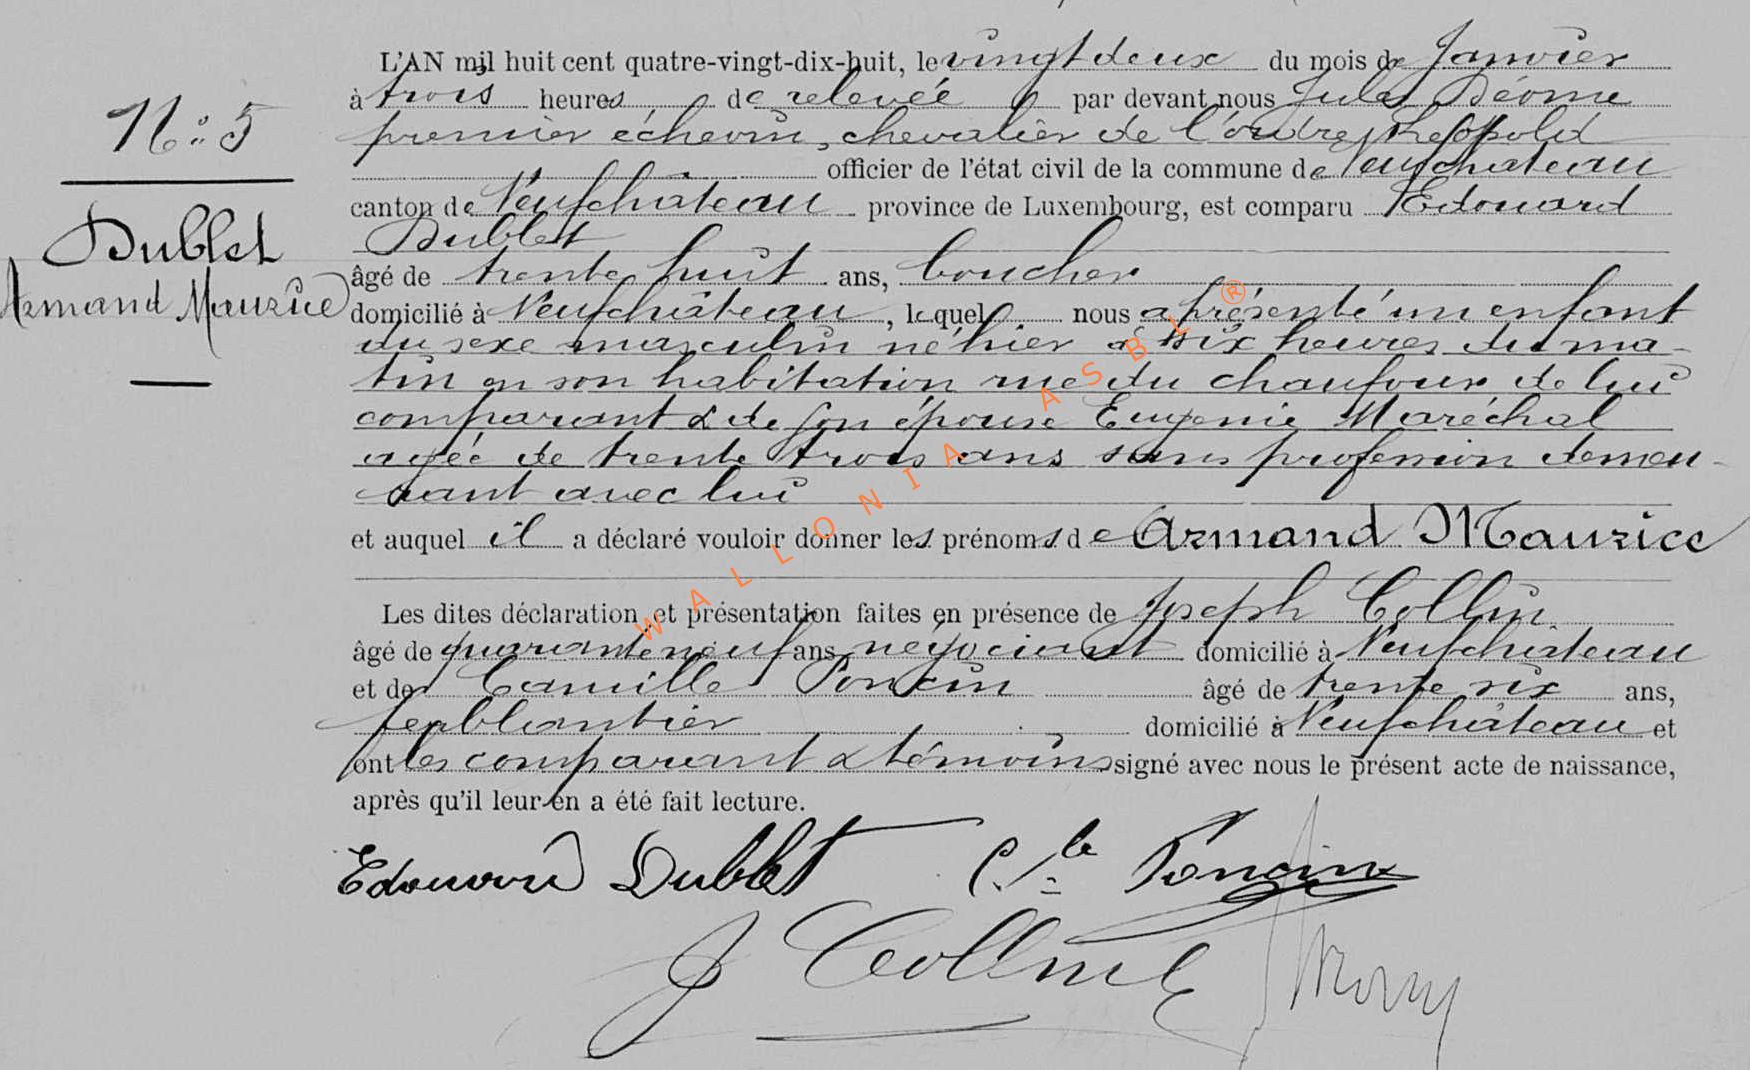 L'AN mil huit cent quatre-vingt-dix-huit, le vingt deux du mois de Janvier
à trois heures de relevée par devant nous Jules Déome
premier échevin, chevalier de l'ordre Léopold
officier de l'état civil de la commune de Neufchateau
canton de Neufchâteau province de Luxembourg, est comparu Edouard
Dublet
âgé de trente huit ans, boucher
domicilié à Neufchâteau, lequel nous a présenté un enfant
du sexe masculin né hier à six heures du ma-
tin en son habitation rue du chaufour de lui
comparant & de son épouse Eugenie Maréchal
agée de trente trois ans sans profession demeu-
rant avec lui
et auquel il a déclaré vouloir donner les prénoms de Armand Maurice
Les dites déclaration et présentation faites en présence de Joseph Collin
âgé de quarante neuf ans négociant domicilié à Neufchâteau
et de Camille Poncin âgé de trente six ans,
ferblantier domicilié à Neufchâteau et
ont les comparant & témoins signé avec nous le présent acte de naissance,
après qu'il leur en a été fait lecture.
Edouard Dublet C.le Poncin
J Collin
N° 5
Dublet
Armand Maurice
WALLONIA ASBL ®